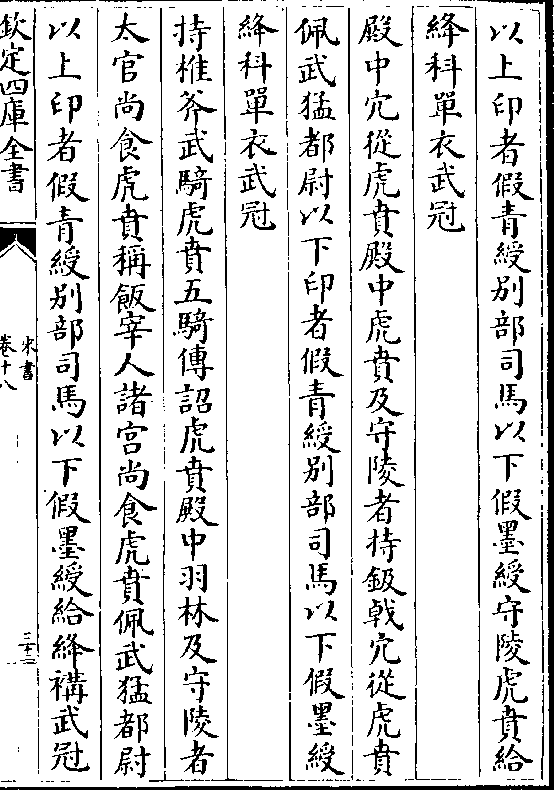 以上印者假青綬别部司馬以下假墨綬守陵虎賁給
絳科單衣武冠
殿中冗從虎賁殿中虎賁及守陵者持鈒戟冗從虎賁
佩武猛都尉以下印者假青綬别部司馬以下假墨綬
絳科單衣武冠
持椎斧武騎虎賁五騎傳詔虎賁殿中羽林及守陵者
太官尚食虎賁稱飯宰人諸宫尚食虎賁佩武猛都尉
以上印者假青綬别部司馬以下假墨綬給絳褠武冠
欽定四庫全書
宋書
卷十八
三十二